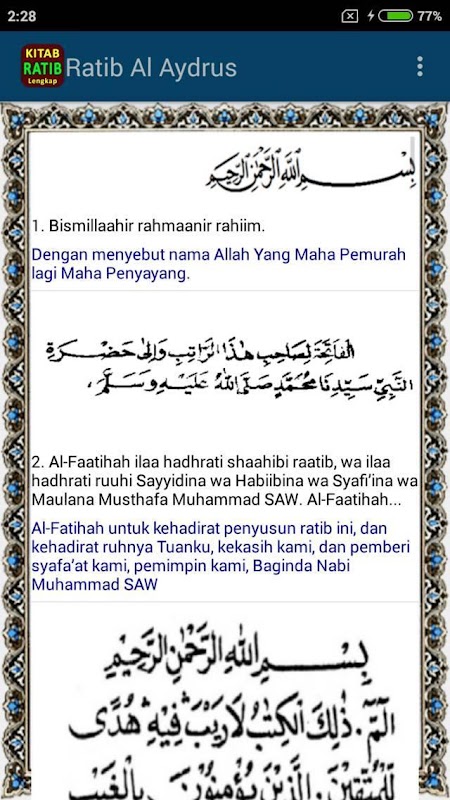 2:28
77%
KITAB
RATIB
Lengkap
Ratib Al Aydrus
بِسْمِ اللهِ الرَّحْمٰنِ الرَّحِيْمِ
1. Bismillaahir rahmaanir rahiim.
Dengan menyebut nama Allah Yang Maha Pemurah
lagi Maha Penyayang.
الْفَاتِحَةَ لِصَاحِبِ هٰذَا الرَّاتِبِ وَإِلَى حَضْرَةِ
النَّبِيِّ سَيِّدِنَا مُحَمَّدٍ صَلَّى اللهُ عَلَيْهِ وَسَلَّمَ،
2. Al-Faatihah ilaa hadhrati shaahibi raatib, wa ilaa
hadhrati ruuhi Sayyidina wa Habiibina wa Syafi’ina wa
Maulana Musthafa Muhammad SAW. Al-Faatihah...
Al-Fatihah untuk kehadirat penyusun ratib ini, dan
kehadirat ruhnya Tuanku, kekasih kami, dan pemberi
syafa’at kami, pemimpin kami, Baginda Nabi
Muhammad SAW
بِسْمِ اللهِ الرَّحْمٰنِ الرَّحِيْمِ
الٓمّٓ. ذٰلِكَ الْكِتٰبُ لَارَيْبَ فِيْهِ هُدًى
لِلْمُتَّقِيْنَ. الَّذِيْنَ يُؤْمِنُوْنَ بِالْغَيْبِ